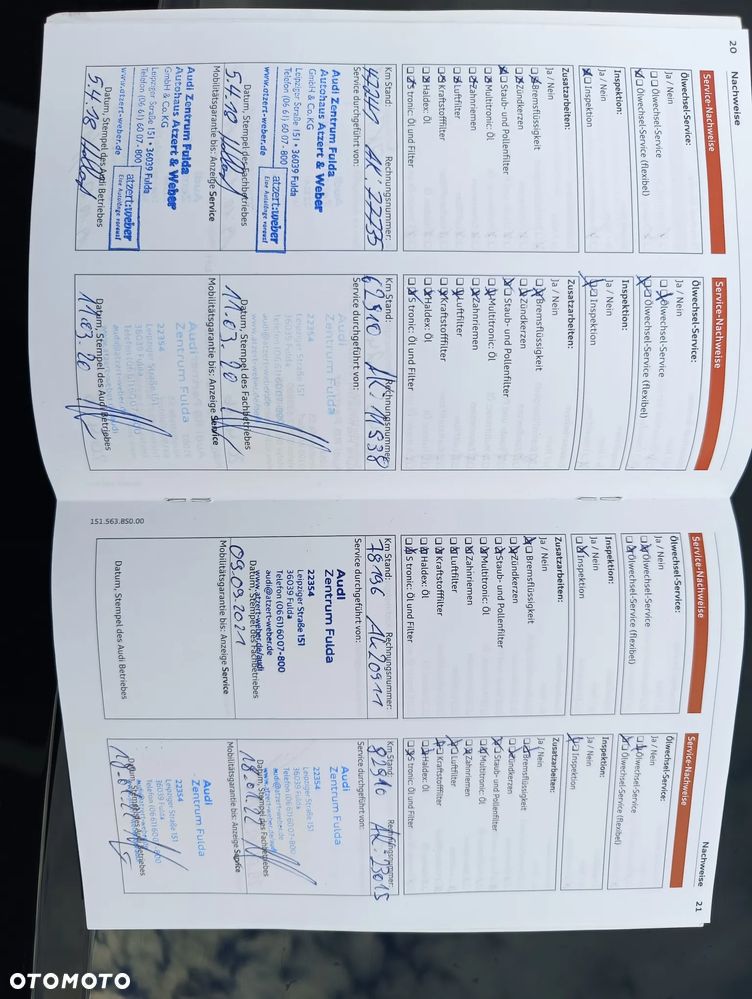 20
Nachweise
Service-Nachweise
Ölwechsel-Service:
Ja / Nein
Ölwechsel-Service
Ölwechsel-Service (flexibel)
Inspektion:
Ja / Nein
Inspektion
Zusatzarbeiten:
Ja / Nein
Bremsflüssigkeit
Zündkerzen
Staub- und Pollenfilter
Multitronic: Öl
Zahnriemen
Luftfilter
Kraftstofffilter
Haldex: Öl
S tronic: Öl und Filter
Km Stand:
Rechnungsnummer:
AK
Service durchgeführt von:
Audi Zentrum Fulda
Autohaus Atzert & Weber
GmbH & Co. KG
Leipziger Straße 151 • 36039 Fulda
Telefon (06 61) 60 07 - 800
www.atzert-weber.de
atzert:weber
Datum, Stempel des Fachbetriebes
5.4.18
Mobilitätsgarantie bis: Anzeige Service
Audi Zentrum Fulda
Autohaus Atzert & Weber
GmbH & Co. KG
Leipziger Straße 151 • 36039 Fulda
Telefon (06 61) 60 07 - 800
www.atzert-weber.de
atzert:weber
Datum, Stempel des Audi Betriebes
5.4.18
Service-Nachweise
Ölwechsel-Service:
Ja / Nein
Ölwechsel-Service
Ölwechsel-Service (flexibel)
Inspektion:
Ja / Nein
Inspektion
Zusatzarbeiten:
Ja / Nein
Bremsflüssigkeit
Zündkerzen
Staub- und Pollenfilter
Multitronic: Öl
Zahnriemen
Luftfilter
Kraftstofffilter
Haldex: Öl
S tronic: Öl und Filter
Km Stand:
Rechnungsnummer:
62910 AK: 11538
Service durchgeführt von:
Audi
Zentrum Fulda
22354
Datum, Stempel des Fachbetriebes
11.03.20
Mobilitätsgarantie bis: Anzeige Service
Audi
Zentrum Fulda
22354
Leipziger Straße 151
36039 Fulda
Datum, Stempel des Audi Betriebes
11.03.20
151.563.850.00
Service-Nachweise
Ölwechsel-Service:
Ja / Nein
Ölwechsel-Service
Ölwechsel-Service (flexibel)
Inspektion:
Ja / Nein
Inspektion
Zusatzarbeiten:
Ja / Nein
Bremsflüssigkeit
Zündkerzen
Staub- und Pollenfilter
Multitronic: Öl
Zahnriemen
Luftfilter
Kraftstofffilter
Haldex: Öl
S tronic: Öl und Filter
Km Stand:
Rechnungsnummer:
78196 AK20911
Service durchgeführt von:
Audi
Zentrum Fulda
22354
Leipziger Straße 151
36039 Fulda
Telefon (06 61) 60 07-800
audi@atzert-weber.de
www.atzert-weber.de/audi
Datum, Stempel des Fachbetriebes
09.09.2021
Mobilitätsgarantie bis: Anzeige Service
Datum, Stempel des Audi Betriebes
Nachweise
21
Service-Nachweise
Ölwechsel-Service:
Ja / Nein
Ölwechsel-Service
Ölwechsel-Service (flexibel)
Inspektion:
Ja / Nein
Inspektion
Zusatzarbeiten:
Ja / Nein
Bremsflüssigkeit
Zündkerzen
Staub- und Pollenfilter
Multitronic: Öl
Zahnriemen
Luftfilter
Kraftstofffilter
Haldex: Öl
S tronic: Öl und Filter
Km Stand:
Rechnungsnummer:
82916 AK: 23015
Service durchgeführt von:
Audi
Zentrum Fulda
22354
Leipziger Straße 151
36039 Fulda
Telefon (06 61) 60 07-800
audi@atzert-weber.de
Datum, Stempel des Fachbetriebes
Mobilitätsgarantie bis: Anzeige Service
Audi
Zentrum Fulda
22354
Leipziger Straße 151
36039 Fulda
Datum, Stempel des Audi Betriebes
OTOMOTO